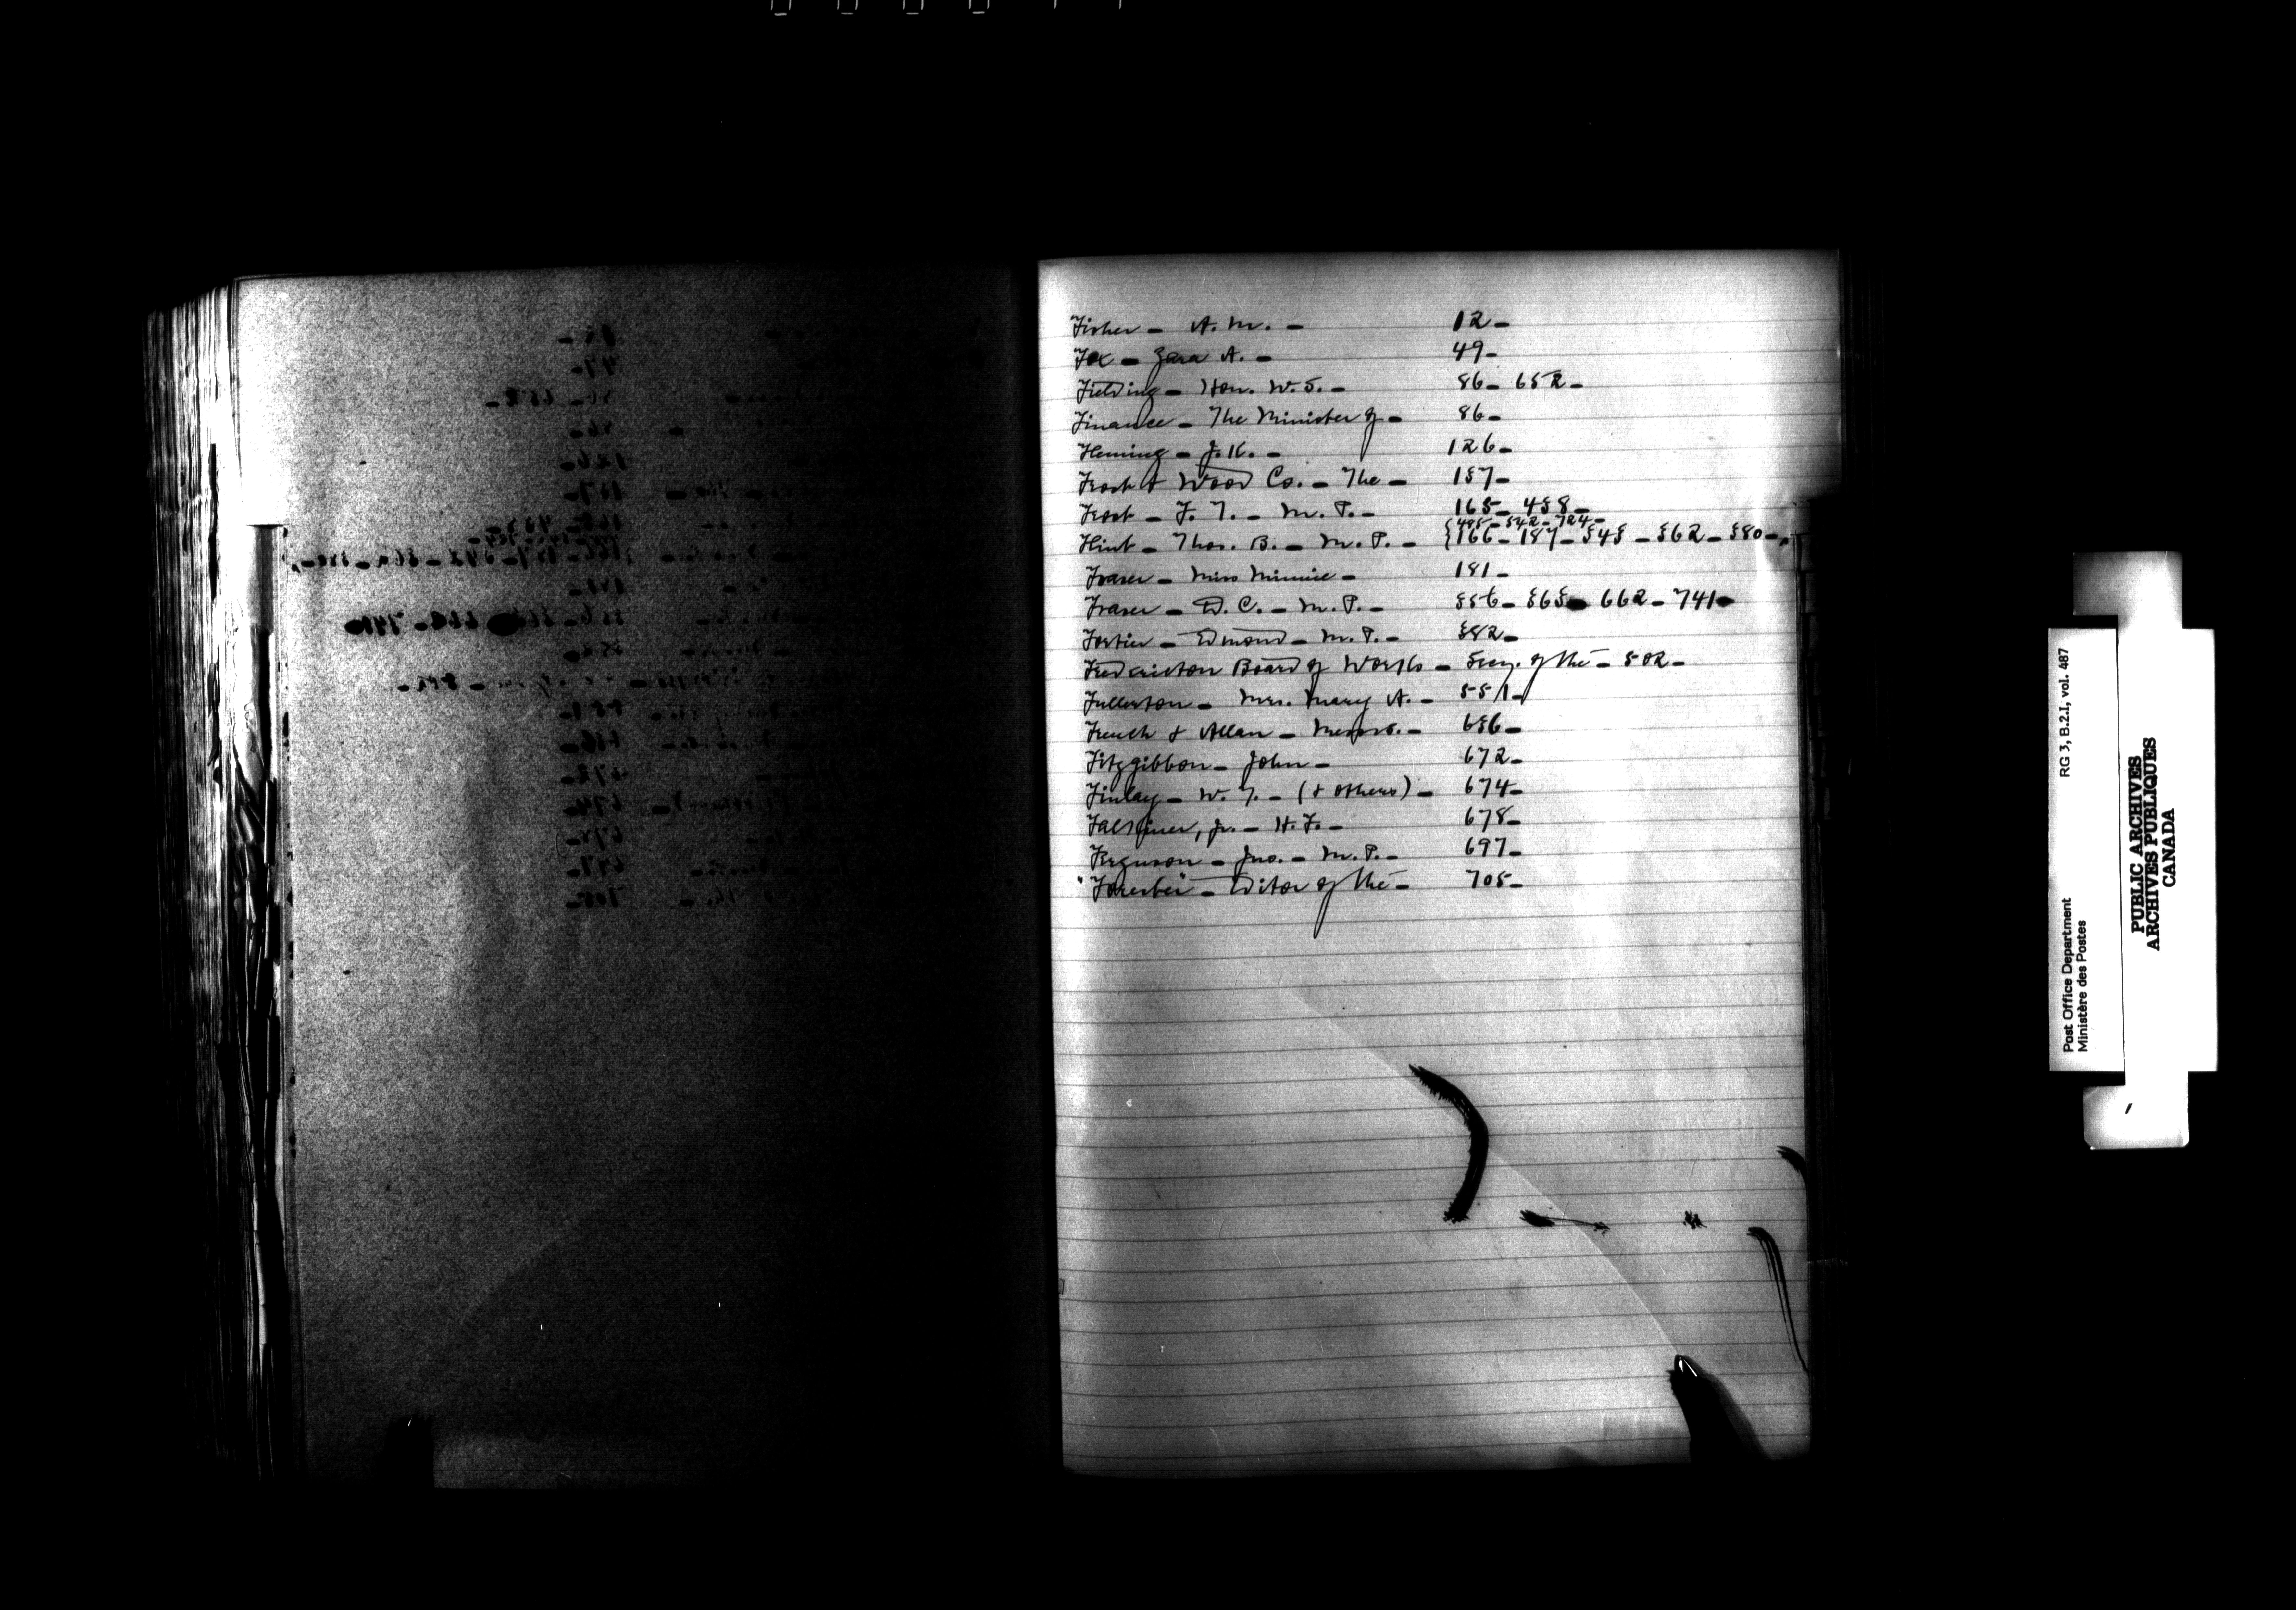 Fisher - A. M. - 12 -
Fox - Zara A. - 49 -
Fielding - Hon. W. S. - 86 - 652 -
Finance - The Minister of - 86 -
Fleming - J. K. - 126 -
Frost & Wood Co. - The - 157 -
Frost - F. T. - M. P. - 165 - 458 -
495 - 542 - 724 -
Flint - Thos. B. - M. P. - 166 - 187 - 545 - 562 - 580 -
Fraser - Miss Minnie - 181 -
Fraser - D. C. - M. P. - 556 - 565 - 662 - 741 -
Fortier - Edmond - M. P. - 582 -
Fredericton Board of Works - Secy. of the - 502 -
Fullerton - Mrs. Mary A. - 551 -
French & Allan - Messrs. - 656 -
Fitzgibbon - John - 672 -
Finlay - W. T. - (& others) - 674 -
Jr. - H. F. - 678 -
Ferguson - Jno. - M. P. - 697 -
"Forester" - Editor of the - 705 -
Post Office Department
Ministère des Postes
RG 3, B.2.I, vol. 487
PUBLIC ARCHIVES
ARCHIVES PUBLIQUES
CANADA